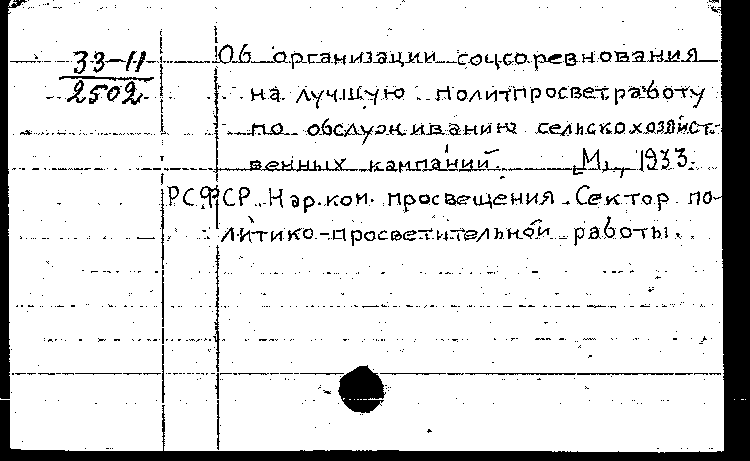 33-11
2502
Об организации соцсоревнования
на лучшую политпросветработу
по обслуживанию сельскохозяйст-
венных кампаний. [М., 1933.
РСФСР. Нар.ком. просвещения. Сектор по-
литико-просветительной работы.